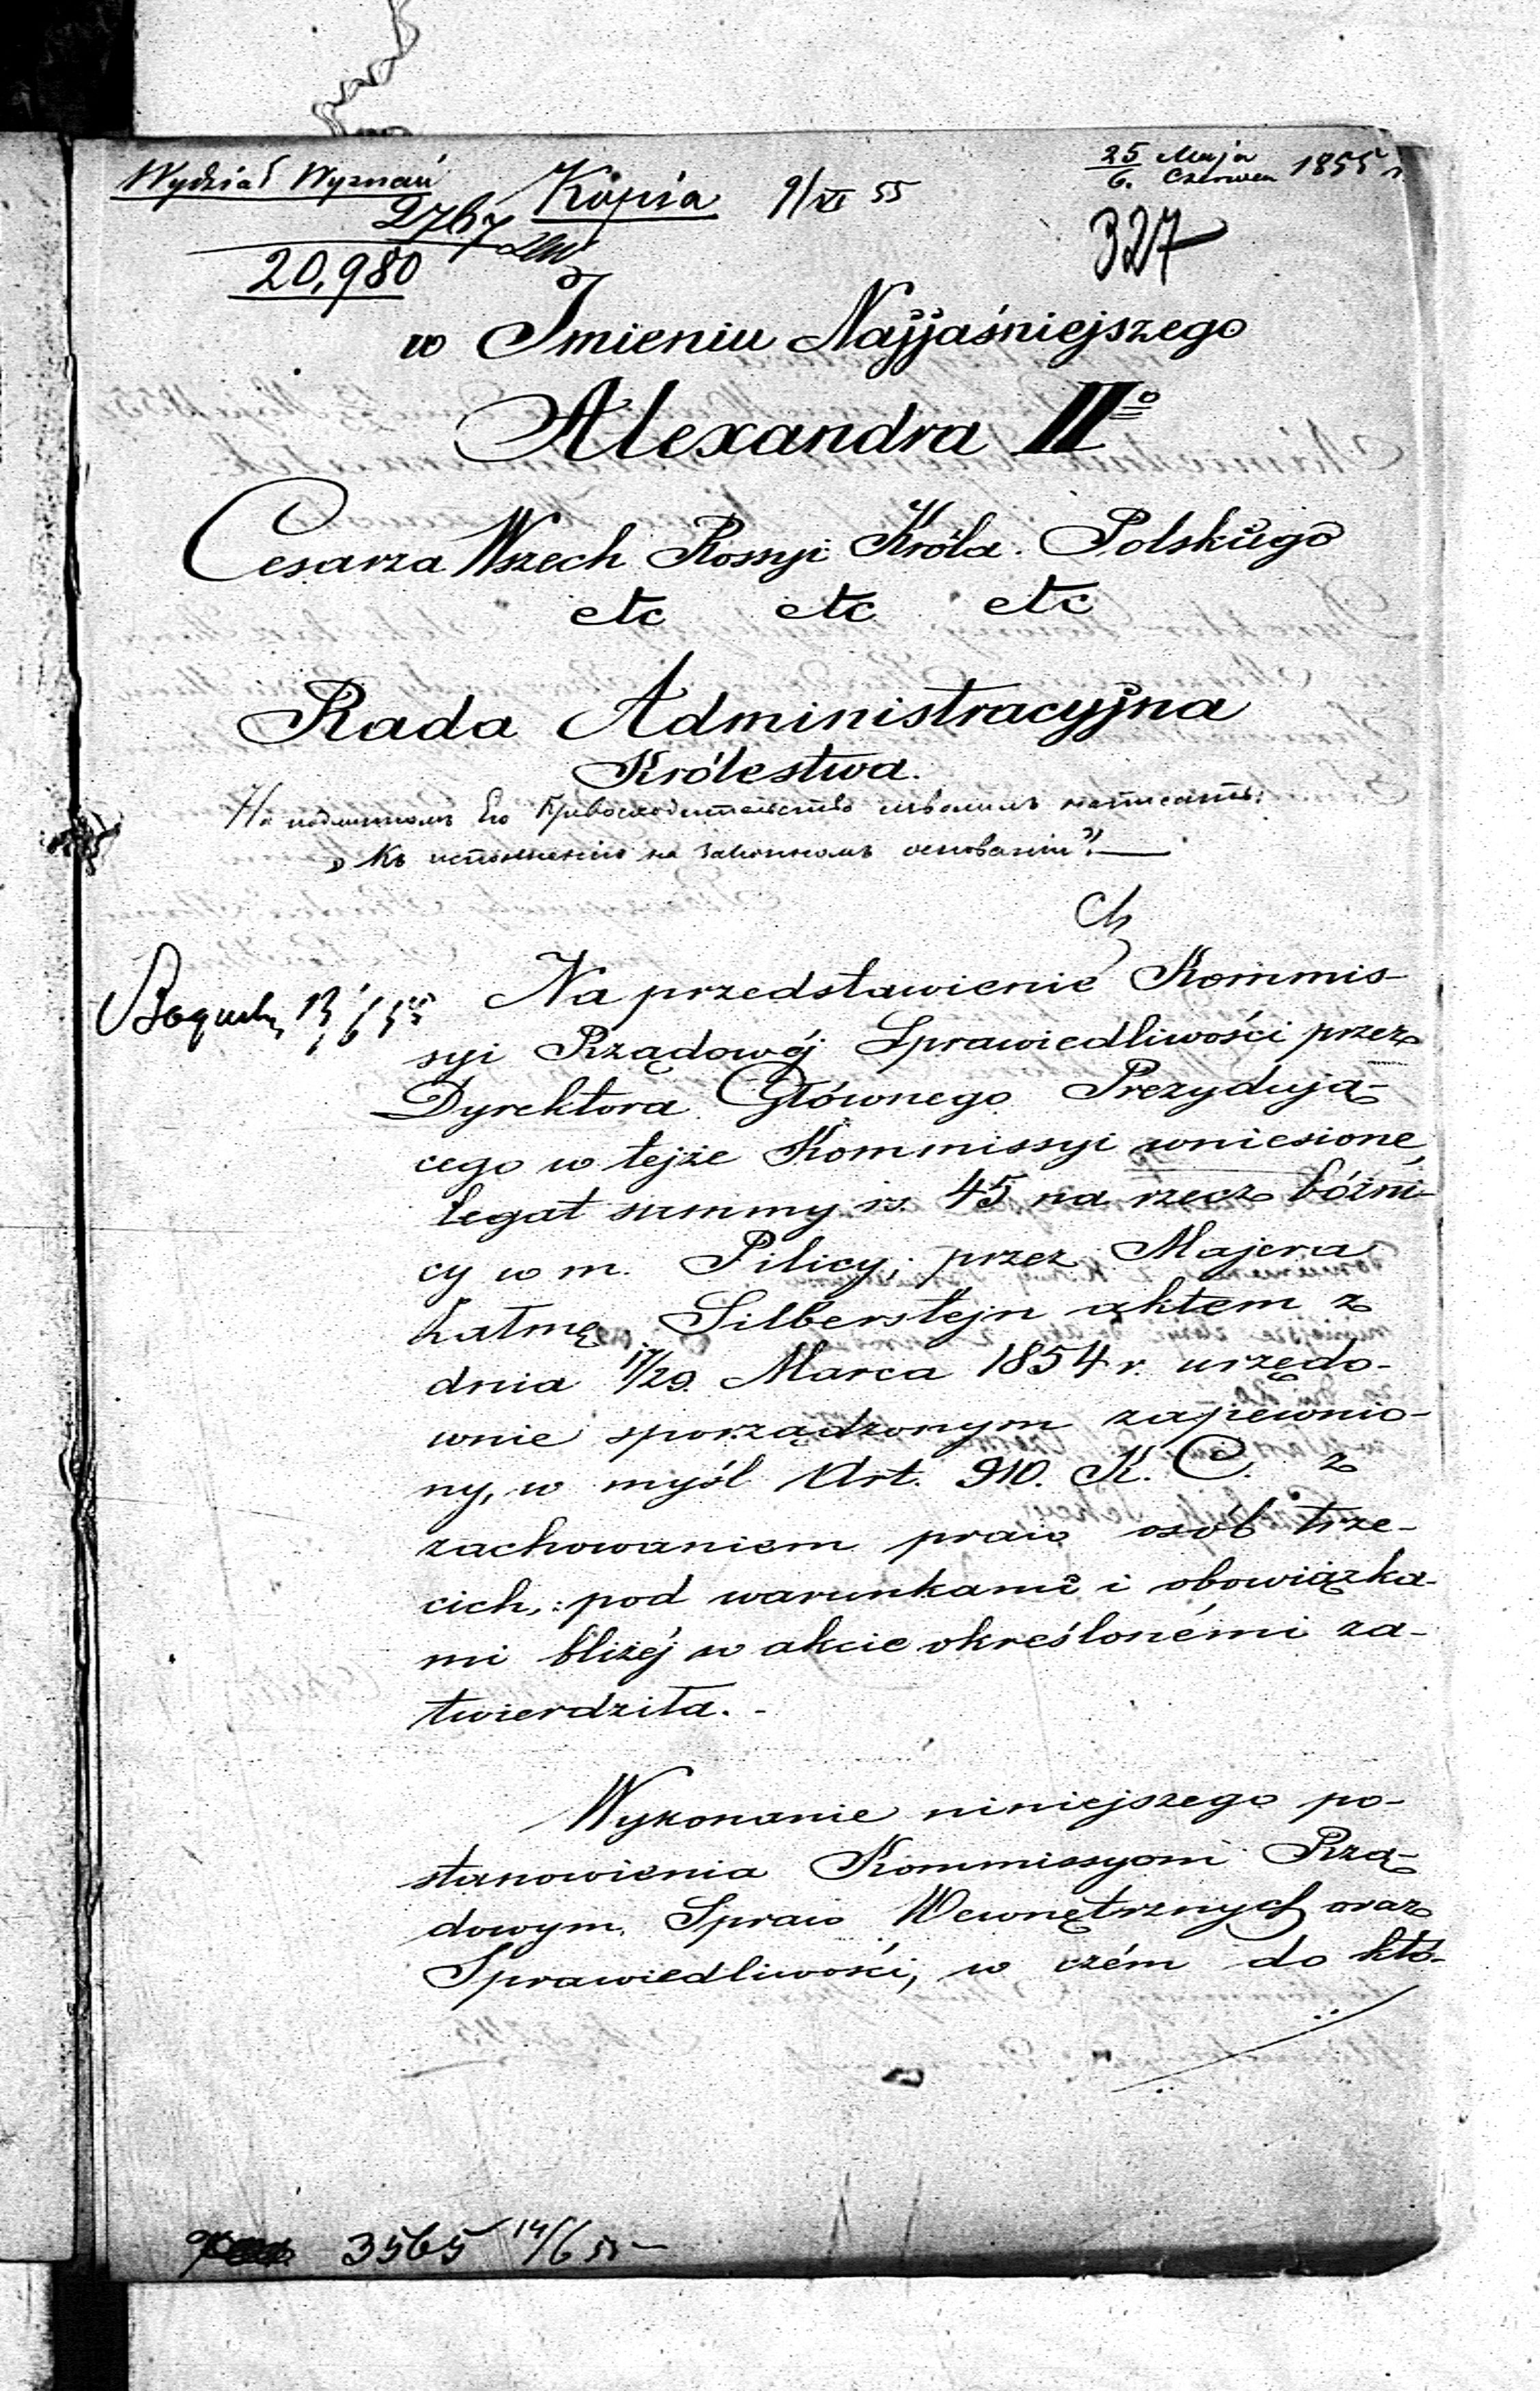 Wydział Wyznań
Kopia 9/VI 55
25 Maja
6. Czerwca 1855 r.
2767
20,980
327
w Imieniu Najjaśniejszego
Alexandra IIº
Cesarza Wszech Rossyi Króla Polskiego
etc etc etc
Rada Administracyjna
Królestwa.
На подлинномъ Его Превосходительство изволилъ написать:
„Къ исполненію на законномъ основаніи"
Na przedstawienie Kommis-
syi Rządowéj Sprawiedliwości przez
Dyrektora Głównego Prezydują-
cego w tejże Kommissyi wniesione,
legat summy rs. 45 na rzecz bóżni-
cy w m. Pilicy, przez Majera
Kałmę Silbersztejn aktem z
dnia 17/29. Marca 1854 r. urzędo-
wnie sporządzonym zapewnio-
ny, w myśl Art. 910. K. C. z
zachowaniem praw osób trze-
cich, pod warunkami i obowiązka-
mi bliżéj w akcie określonémi za-
twierdziła. -
Wykonanie niniejszego po-
stanowienia Kommissyom Rzą-
dowym Spraw Wewnętrznych oraz
Sprawiedliwości, w czém do któ-
3565 14/6 55